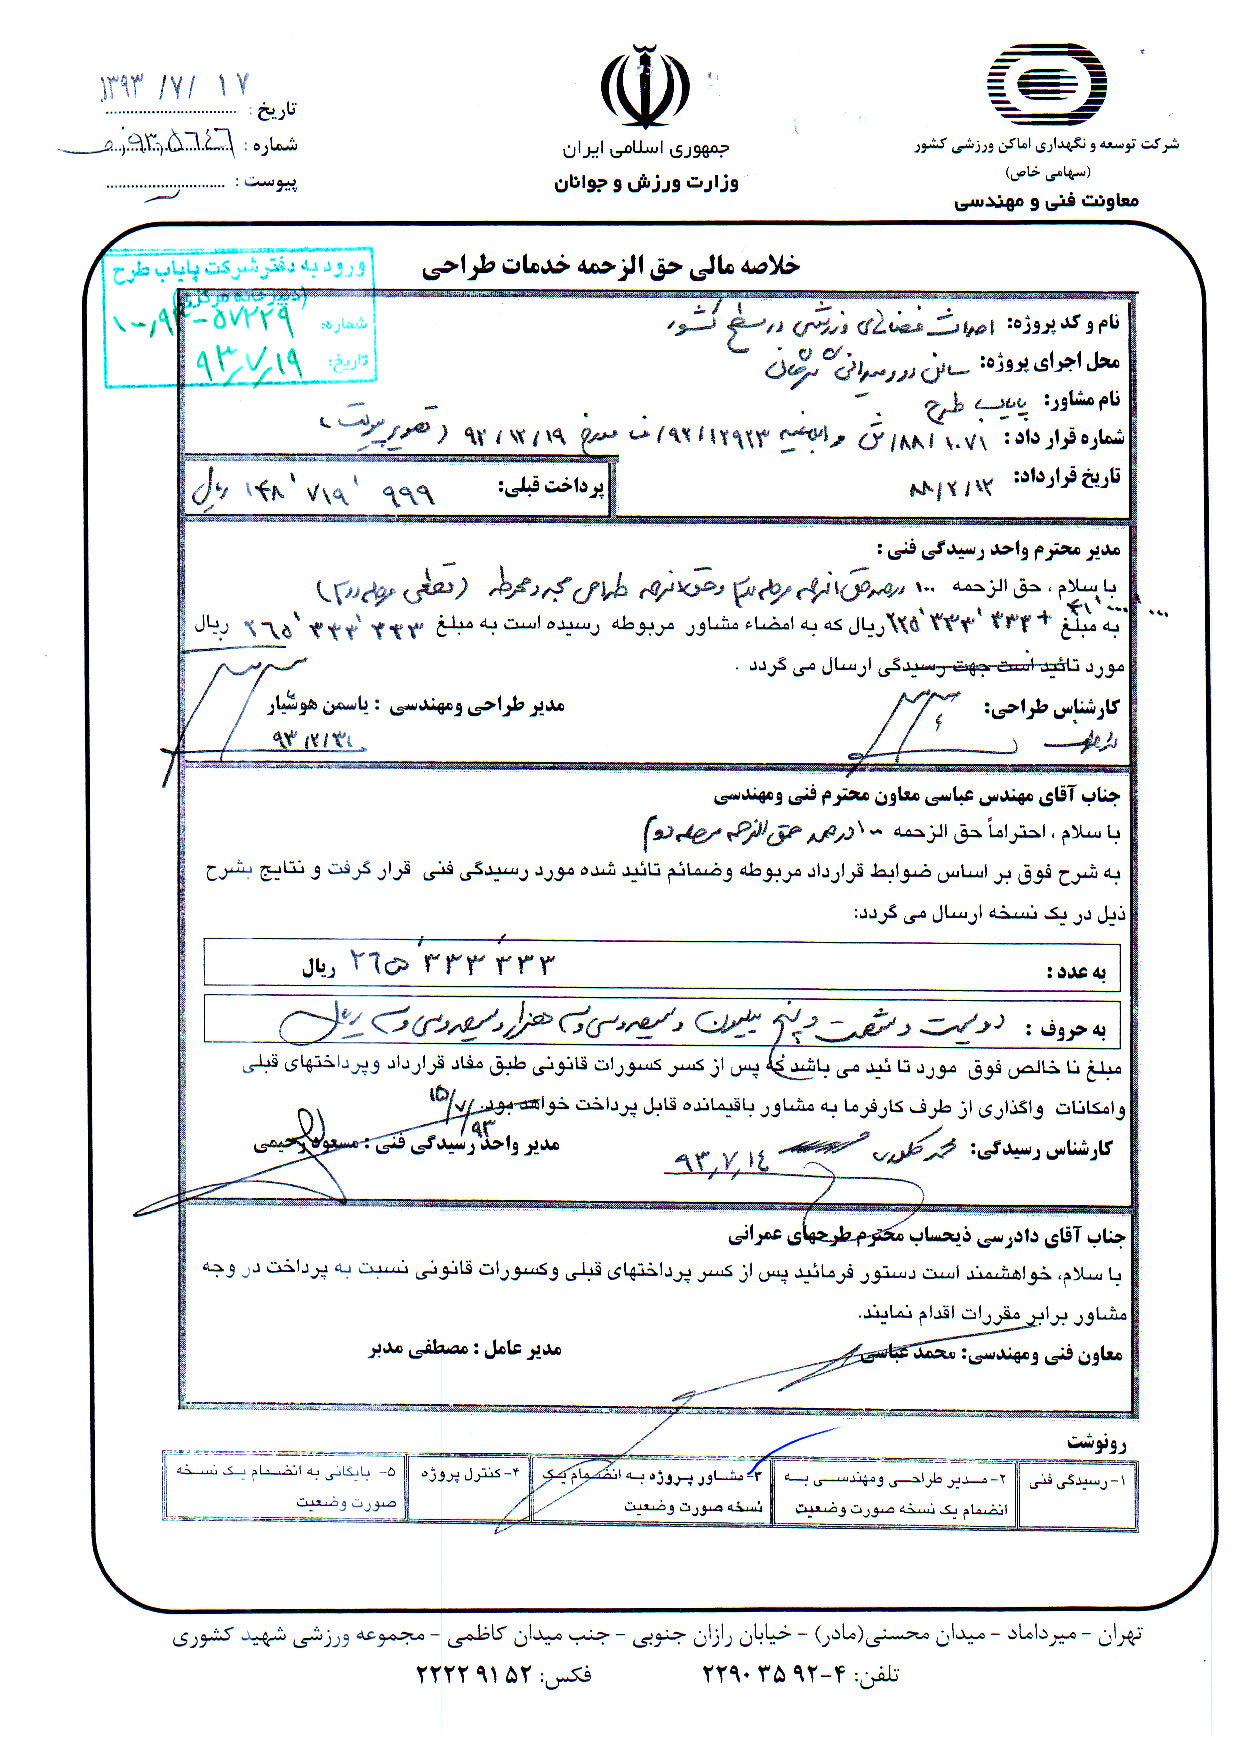 شرکت توسعه و نگهداری اماکن ورزشی کشور
(سهامی خاص)
معاونت فنی و مهندسی
جمهوری اسلامی ایران
وزارت ورزش و جوانان
تاریخ : ۱۳۹۳/۷/۱۷
شماره : ۹۳,۵۶۴۶
پیوست :
خلاصه مالی حق الزحمه خدمات طراحی
ورود به دفتر شرکت پایاب طرح
(دبیرخانه مرکزی)
شماره: ۱۰-۹۳-۵۷۲۲۹
تاریخ: ۹۳,۷,۱۹
نام و کد پروژه: احداث فضاهای ورزشی در سطح کشور
محل اجرای پروژه: سالن دو و میدانی
نام مشاور: پایاب طرح
شماره قرار داد: ۸۸/۱۰۷۱/ش و ابلاغیه ۹۲/۱۲۹۲۳/ مورخ ۹۲/۱۲/۱۹ (تصویر پیوست)
تاریخ قرارداد: ۸۸/۲/۱۲
پرداخت قبلی: ۱۴۸٬۷۱۹٬۹۹۹ ریال
مدیر محترم واحد رسیدگی فنی :
با سلام ، حق الزحمه ۱۰۰ درصد حق الزحمه مرحله دوم و حق الزحمه طراحی محوطه (قطعی مرحله دوم)
به مبلغ ۶۲۵٬۳۳۳٬۳۳۳ + ۴۱٬۰۰۰٬۰۰۰ ریال که به امضاء مشاور مربوطه رسیده است به مبلغ ۲۶۵٬۳۳۳٬۳۳۳ ریال
مورد تائید است جهت رسیدگی ارسال می گردد .
کارشناس طراحی:
مدیر طراحی ومهندسی : یاسمن هوشیار
۹۳/۲/۳۱
جناب آقای مهندس عباسی معاون محترم فنی ومهندسی
با سلام ، احتراماً حق الزحمه ۱۰۰ درصد حق الزحمه مرحله دوم
به شرح فوق بر اساس ضوابط قرارداد مربوطه وضمائم تائید شده مورد رسیدگی فنی قرار گرفت و نتایج بشرح
ذیل در یک نسخه ارسال می گردد:
به عدد : ۲۶۵٬۳۳۳٬۳۳۳ ریال
به حروف : دویست و شصت و پنج میلیون و سیصد و سی و سه هزار و سیصد و سی و سه ریال
مبلغ نا خالص فوق مورد تا ئید می باشد که پس از کسر کسورات قانونی طبق مفاد قرارداد وپرداختهای قبلی
وامکانات واگذاری از طرف کارفرما به مشاور باقیمانده قابل پرداخت خواهد بود.
کارشناس رسیدگی: ۹۳,۷,۱۴
مدیر واحد رسیدگی فنی : مسعود رحیمی
۹۳/۷/۱۵
جناب آقای دادرسی ذیحساب محترم طرحهای عمرانی
با سلام، خواهشمند است دستور فرمائید پس از کسر پرداختهای قبلی وکسورات قانونی نسبت به پرداخت در وجه
مشاور برابر مقررات اقدام نمایند.
معاون فنی ومهندسی: محمد عباسی
مدیر عامل : مصطفی مدبر
رونوشت
۱- رسیدگی فنی
۲- مدیر طراحی ومهندسی به
انضمام یک نسخه صورت وضعیت
۳- مشاور پروژه به انضمام یک
نسخه صورت وضعیت
۴- کنترل پروژه
۵- بایگانی به انضمام یک نسخه
صورت وضعیت
تهران - میرداماد - میدان محسنی(مادر) - خیابان رازان جنوبی - جنب میدان کاظمی - مجموعه ورزشی شهید کشوری
تلفن: ۴-۹۲ ۳۵ ۲۲۹۰
فکس: ۵۲ ۹۱ ۲۲۲۲